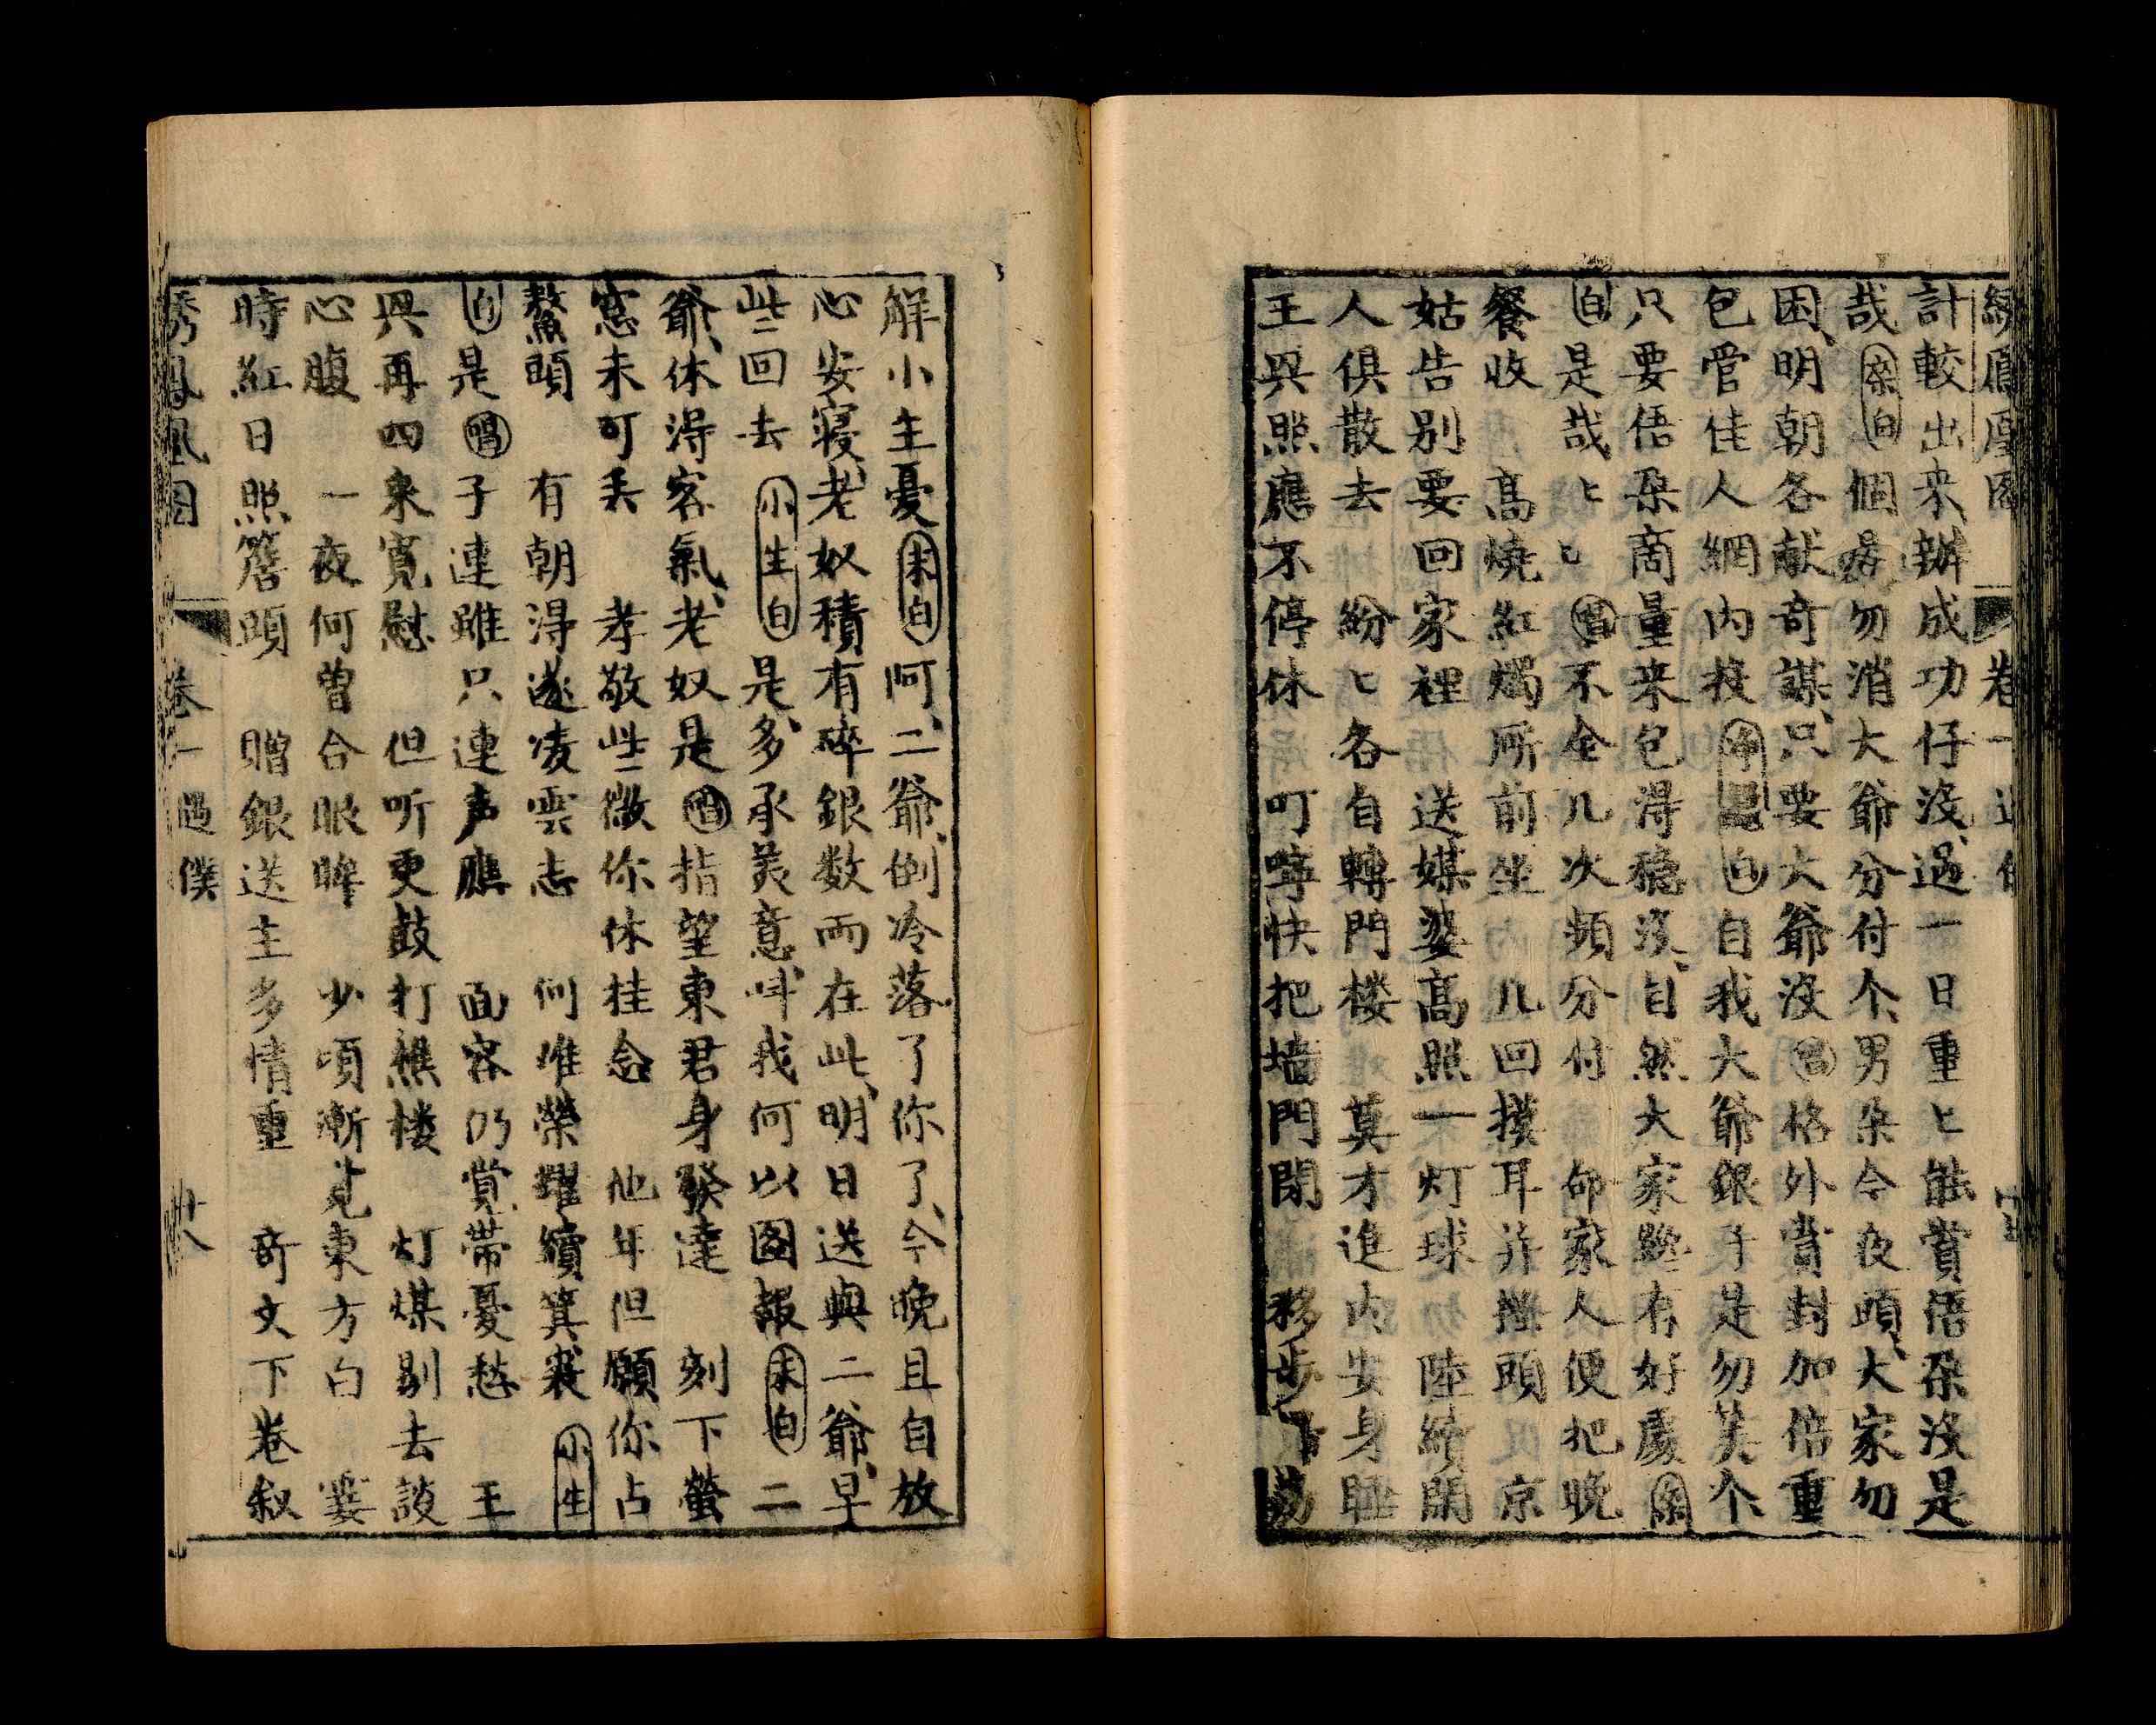 綉鳳凰圖 卷一
計較出來辦成功仔沒過一日重匕能賞俉朶沒是
哉 白 個 勿消大爺分付个男朶今夜頭大家勿
困明朝各献奇謀只要大爺沒 唱 格外賞封加倍重
包管佳人網内投 白 自我大爺銀子是勿美个
只要俉朶商量来包得穩沒自然大家跳有好處
白 是哉匕匕 唱 不全几次頻分付 命家人便把晚
餐收 高燒紅燭所前坐 几回摸耳并搔頭 京
姑告別要回家裡 送媒婆高照一灯球 陸續閑
人俱散去 紛匕各自轉門楼 莫才進内安身睡
王興照應不停休 叮嚀快把墻門閉 移步下
觧小主憂 末白 阿二爺倒冷落了你了今晚且自放
心安寝老奴積有碎銀数兩在此明日送與二爺早
些回去 小生白 是多承美意呌我何以圖報 末白 二
爺休淂客氣老奴是 唱 指望東君身發達 刻下螢
窓未可丢 孝敬些微你休挂念 他年但願你占
鰲頭 有朝淂遂凌雲志 何难榮耀續箕裘 小生
白 是 唱 子連雖只連声應 面容仍覚帶憂愁 王
興再四來寬慰 但听更鼓打樵楼 灯煤剔去談
心腹 一夜何曽合眼眸 少頃漸覓東方白 霎
時紅日照簷頭 贈銀送主多情重 奇文下卷叙
綉鳳凰圖 卷一 遇僕 廿八